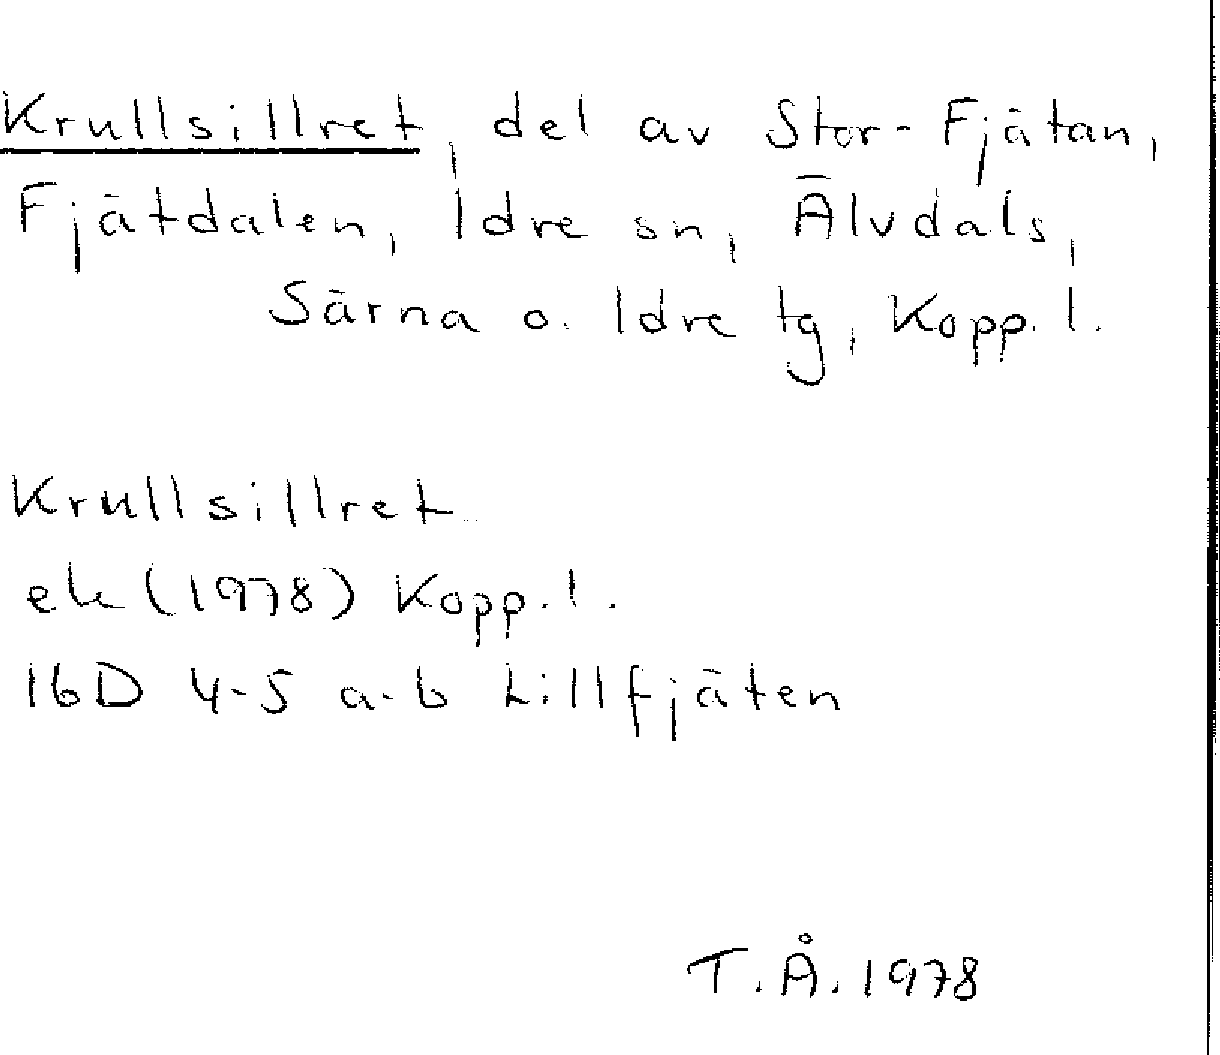 Krullsillret, del av Stor-Fjätan,
Fjätdalen, Idre sn, Älvdals,
Särna o. Idre tg, Kopp. l.
Krullsillret
ek (1978) Kopp. l.
16D 4-5 a-b Lillfjäten
T.Å. 1978